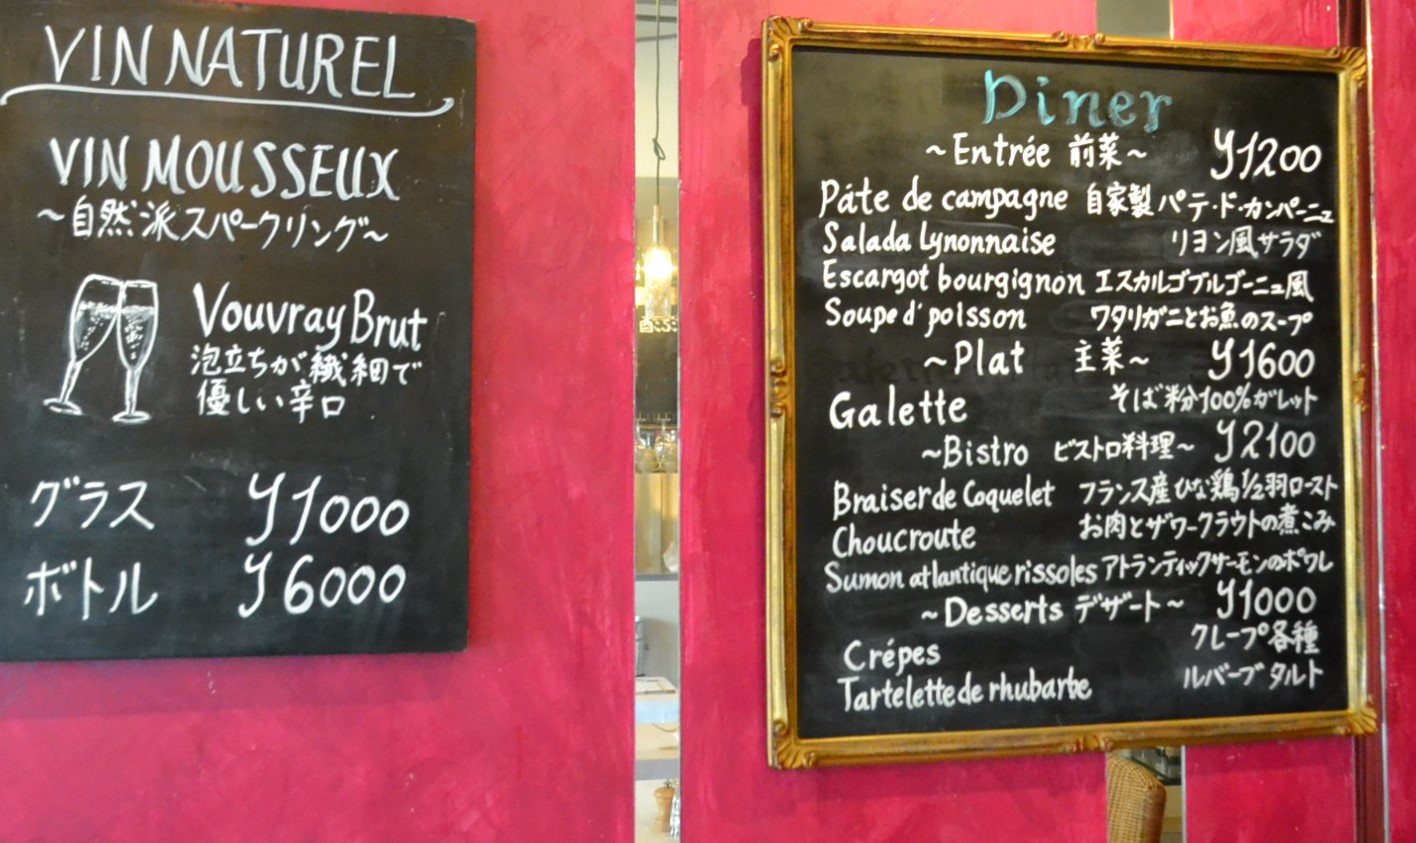 VIN NATUREL
VIN MOUSSEUX
～自然派スパークリング～
Vouvray Brut
泡立ちが繊細で
優しい辛口
グラス ¥1000
ボトル ¥6000
Diner
～Entrée 前菜～ ¥1200
Pâte de campagne 自家製パテ・ド・カンパーニュ
Salada lynonnaise リヨン風サラダ
Escargot bourgignon エスカルゴブルゴーニュ風
Soupe d'poisson ワタリガニとお魚のスープ
～Plat 主菜～ ¥1600
Galette そば粉100%ガレット
～Bistro ビストロ料理～ ¥2100
Braiser de Coquelet フランス産ひな鶏1/2羽ロースト
Choucroute お肉とザワークラウトの煮こみ
Sumon atlantique rissoles アトランティックサーモンのポワレ
～Desserts デザート～ ¥1000
Crépes クレープ各種
Tartelette de rhubarbe ルバーブタルト